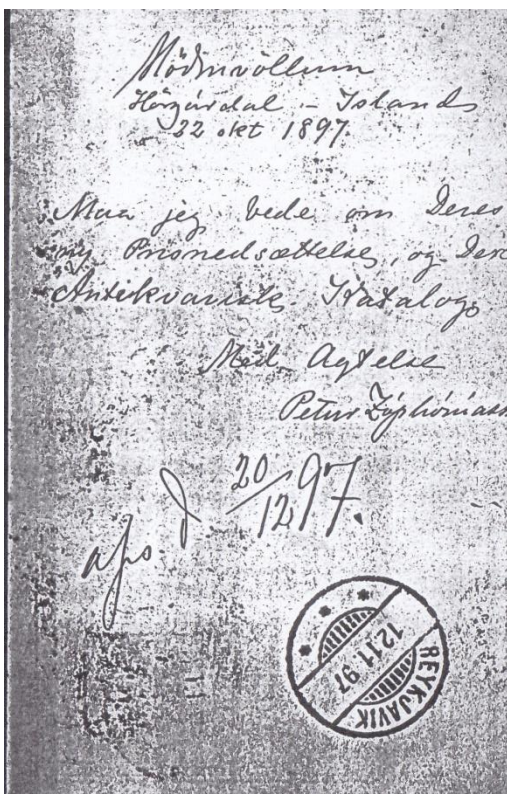 Möðruvöllum
Hörgárdal - Island
22 okt 1897.
Maa jeg bede om Deres
ny Prisnedsættelse, og Dere
Antikvariske Katalog,
Med Agtelse
Petur Zóphóníass
afs. d 20/12 97.
12.11.97
REYKJAVIK